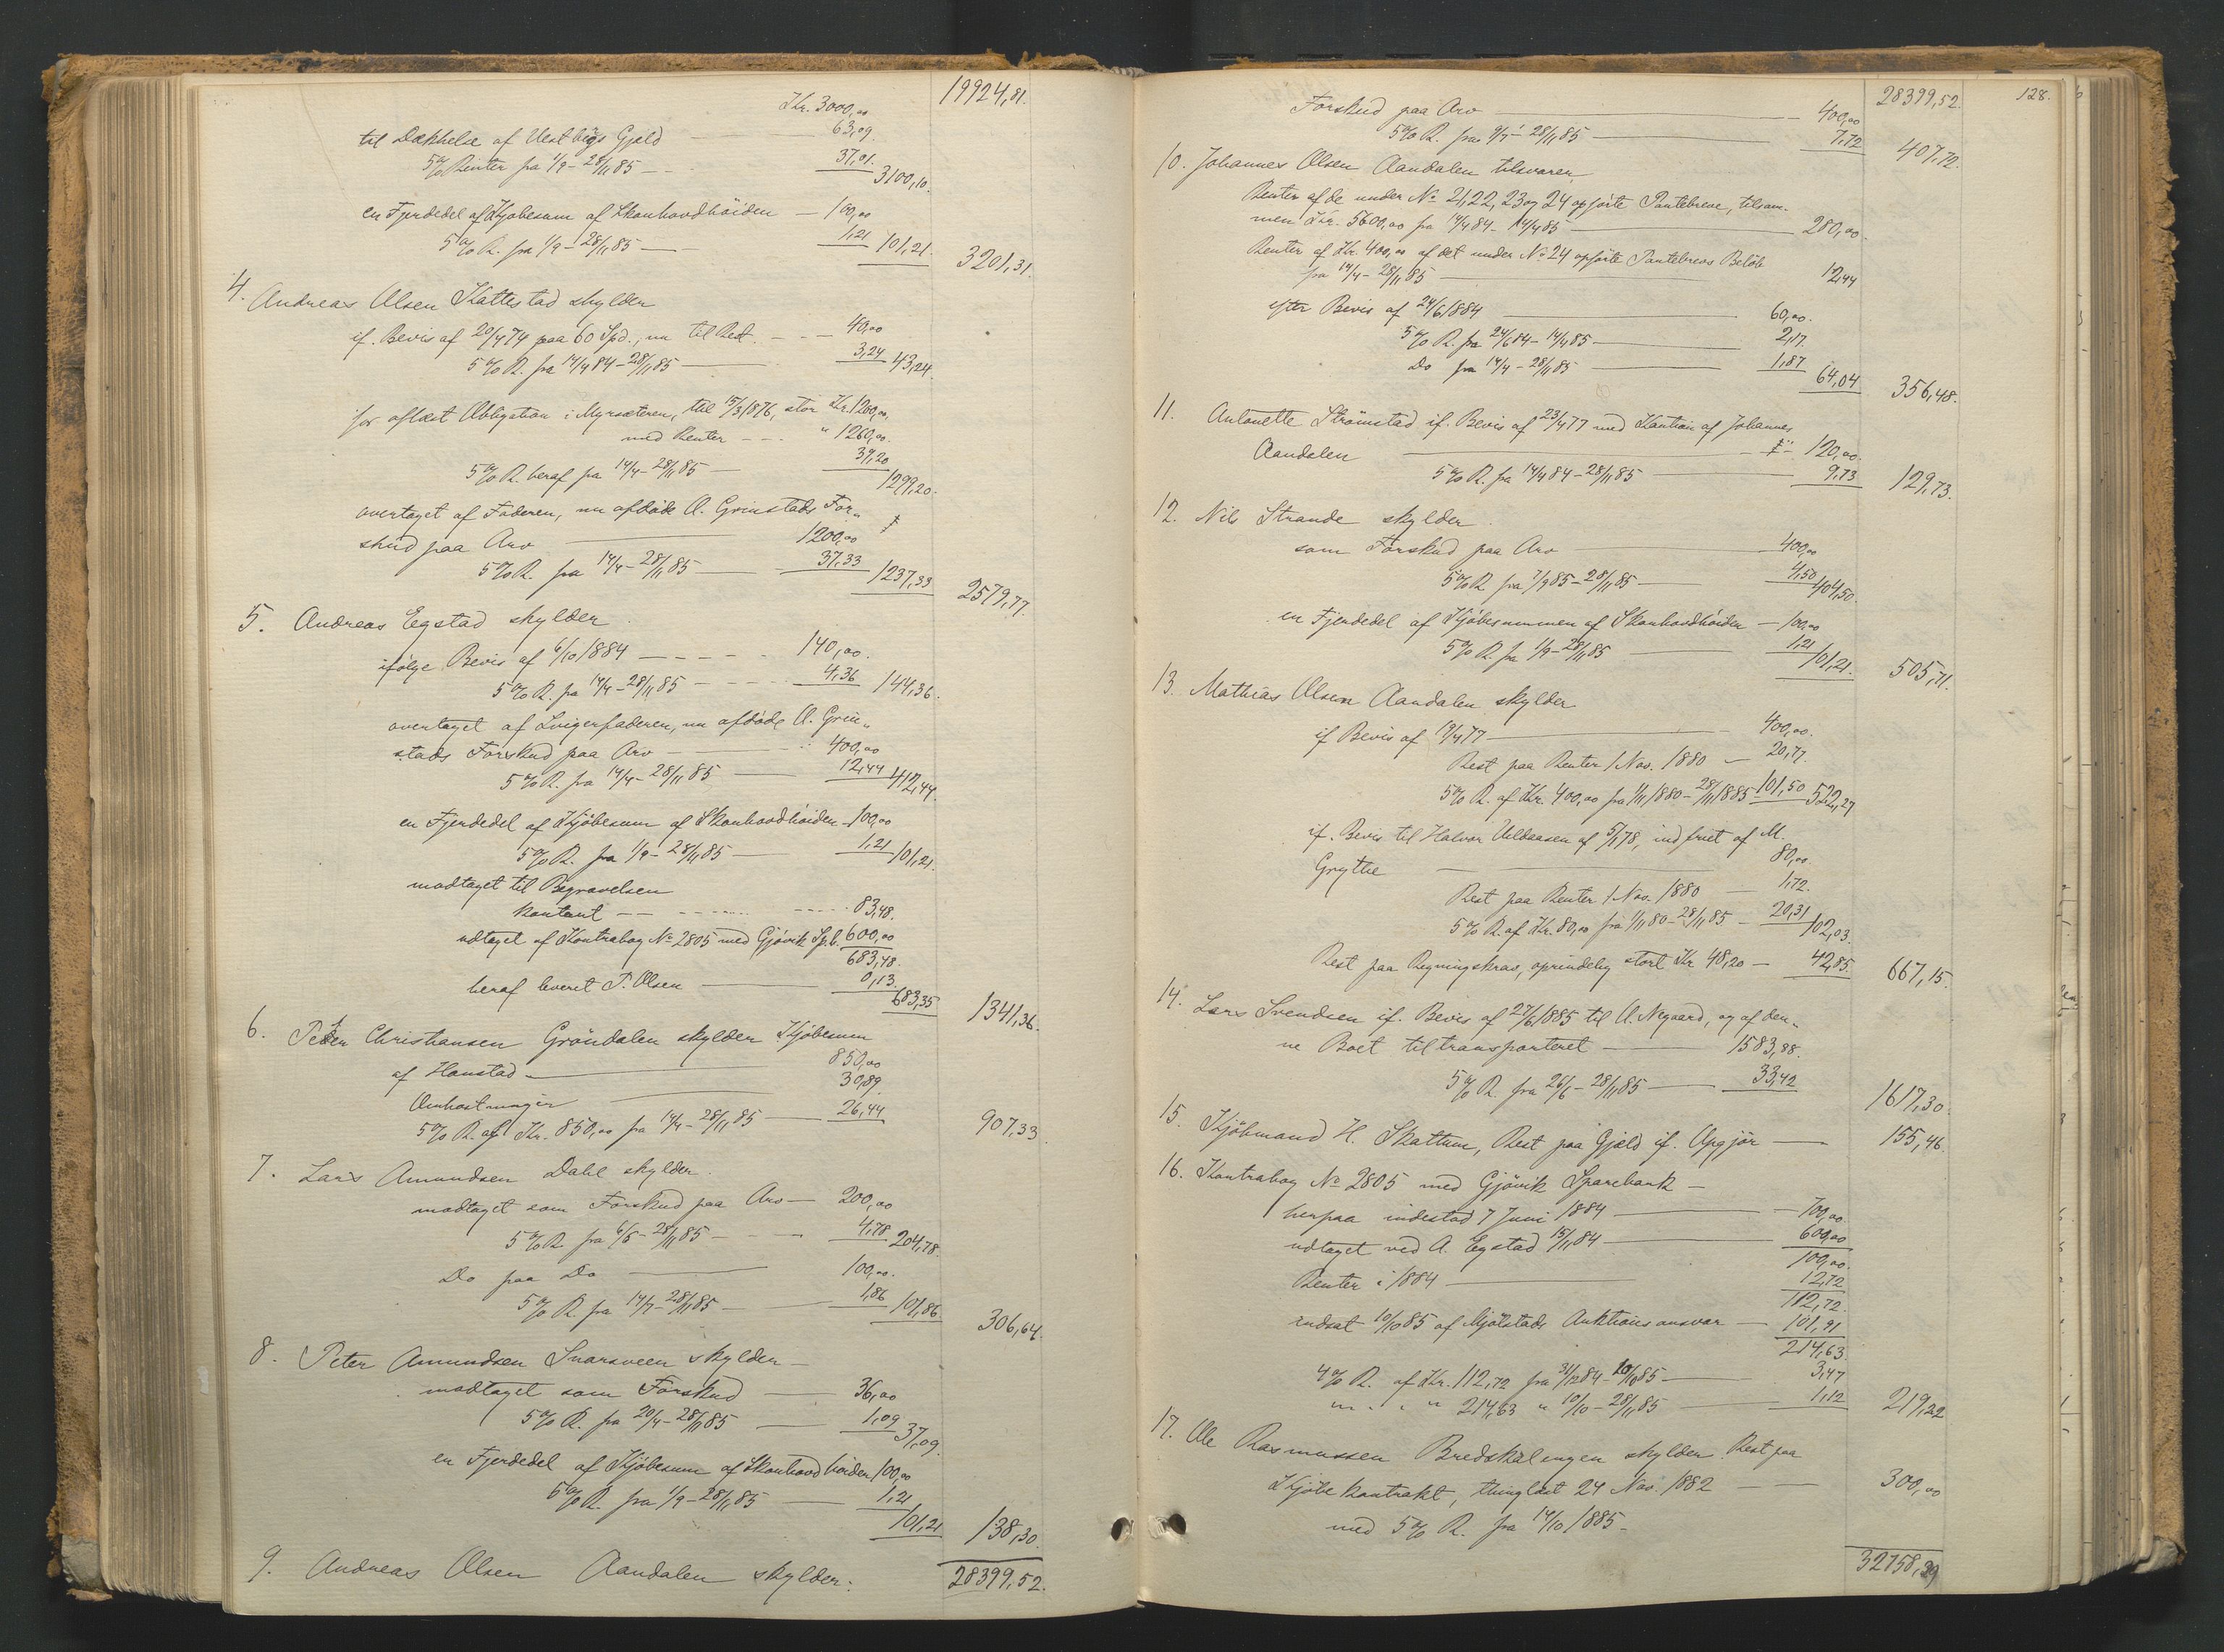 19924,81.
Kr. 3000,00
til Dækkelse af Vestbygs Gjæld 63,09
5% Renter fra 1/9 - 28/11 85 - - 37,01. 3100,10.
en Fjerdedel af Kjøbesum af Skonhovdhöiden - 100,00
5% R. fra 1/9 - 28/11 85 - - 1,21 101,21. 3201,31.
4. Andreas Olsen Kattestad skylder
if. Bevis af 20/4 74 paa 60 Spd., nu til Rest. - - 40,00
5% R. fra 14/4 84 - 28/11 85 - 3,24 43,24.
for aflæst Obligation i Myrsæteren, till 15/3 1876, stor Kr. 1200,00,
med Renter - - - " 1260,00.
5% R. heraf fra 14/4 - 28/11 85 - 39,20 1299,20.
overtaget af Faderen, nu afdöde O. Grinstads For-
skud paa Arv - 1200,00
5% R. fra 14/4 - 28/11 85 - 37,33 1237,33 2579,77.
5. Andreas Egstad skylder.
ifölge Bevis af 6/10 1884 - - - - 140,00.
5% R. fra 14/4 - 28/11 85 - - - - 4,36 144,36.
overtaget af Svigerfaderen, nu afdöde O. Grin-
stads Forskud paa Arv - 400,00
5% R. fra 14/4 - 28/11 85 - 12,44 412,44.
en Fjerdedel af Kjöbesum af Skonhovdhöiden - 100,00
5% R. fra 1/9 - 28/11 85 - 1,21 101,21.
modtaget til Begravelsen
kontant - - - - - 83,48.
udtaget af Kontrabog No 2805 med Gjövik Spb. 600,00
683,48.
heraf leveret P. Olsen - 0,13.
683,35 1341,36.
6. Peder Christiansen Gröndalen skylder Kjöbesum
af Hanstad - 850,00
Omkostninger - 30,89
5% R. af Kr. 850,00 fra 14/4 - 28/11 85 - 26,44 907,33.
7. Lars Amundsen Dahl skylder.
modtaget som Forskud paa Arv - 200,00
5% R. fra 6/6 - 28/11 85 - - - 4,78 204,78
Do paa Do - 100,00.
5% R. fra 14/7 - 28/11 85 - 1,86 101,86. 306,64.
8. Peter Amundsen Snarsveen skylder -
modtaget som Forskud - 36,00
5% R. fra 20/4 - 28/11 85 - 1,09 37,09.
en Fjerdedel af Kjöbesum af Skonhovdhöiden 100,00
5% R. fra 1/9 - 28/11 85 - 1,21
101,21 138,30.
9. Andreas Olsen Aandalen skylder: 28399,52.
28399,52. 128.
Forskud paa Arv - 400,00
5% R. fra 9/7 - 28/11 85 - 7,72 407,72.
10. Johannes Olsen Aandalen tilsvarer
Renter af de under No 21,22,23 og 24 opförte Pantebreve, tilsam-
men Kr. 5600,00 fra 14/4 84 - 14/4 85 - 280,00.
Renter af Kr. 400,00 af det under No 24 opförte Pantebrevs Belöb
fra 14/4 - 28/11 85 - 12,44
efter Bevis af 24/6 1884 - 60,00.
5% R. fra 24/6 84 - 14/4 85 - 2,17.
Do fra 14/4 - 28/11 85 - 1,87
64,04 356,48.
11. Antonette Strömstad if. Bevis af 23/4 77 med Kaution af Johannes
Aandalen - 120,00.
5% R. fra 14/4 84 - 28/11 85 - 9,73 129,73.
12. Nils Strande skylder.
som Forskud paa Arv - 400,00
5% R. fra 7/9 85 - 28/11 85 - 4,50 404,50.
en Fjerdedel af Kjöbesummen af Skonhovdhöiden - 100,00
5% R. fra 1/9 - 28/11 85 - 1,21
101,21. 505,71.
13. Mathias Olsen Aandalen skylder
if Bevis af 19/4 77 - 400,00.
Rest paa Renter 1 Nov. 1880 - 20,77.
5% R. af Kr. 400,00 fra 1/11 1880 - 28/11 1885 - 101,50 522,27
if. Bevis til Halvor Veldaasen af 5/1 78, indfriet af M.
Grythe - 80,00.
Rest paa Renter 1 Nov. 1880 - 1,72.
5% R. af Kr. 80,00 fra 1/11 80 - 28/11 85 - 20,31 102,03.
Rest paa Regningskrav, oprindelig stort Kr 48,20 - 42,85. 667,15.
14. Lars Svendsen if. Bevis af 27/6 1885 til O. Nygaard, og af den-
ne Boet tiltransporteret - 1583,88.
5% R. fra 26/6 - 28/11 85 - 33,42 1617,30.
15. Kjöbmand H. Skattum, Rest paa Gjæld if. Opgjör - 155,46.
16. Kontrabog No 2805 med Gjövik Sparebank -
herpaa indestod 7 Juni 1884 - 700,00.
udtaget ved A. Egstad 15/11 84 - 600,00
100,00.
Renter i 1884 - 12,72
112,72.
indsat 10/10 85 af Mjölstads Auktionsansvar - 101,91
214,63.
4% R. af Kr. 112,72 fra 31/12 84 - 10/10 85 - 3,47
" " " 214,63 " 10/10 - 28/11 85 - 1,12 219,22
17. Ole Rasmussen Bredskalengen skylder Rest paa
Kjöbekontrakt, thinglæst 24 Nov. 1882 - 300,00
med 5% R. fra 14/10 1885 -
32758,39